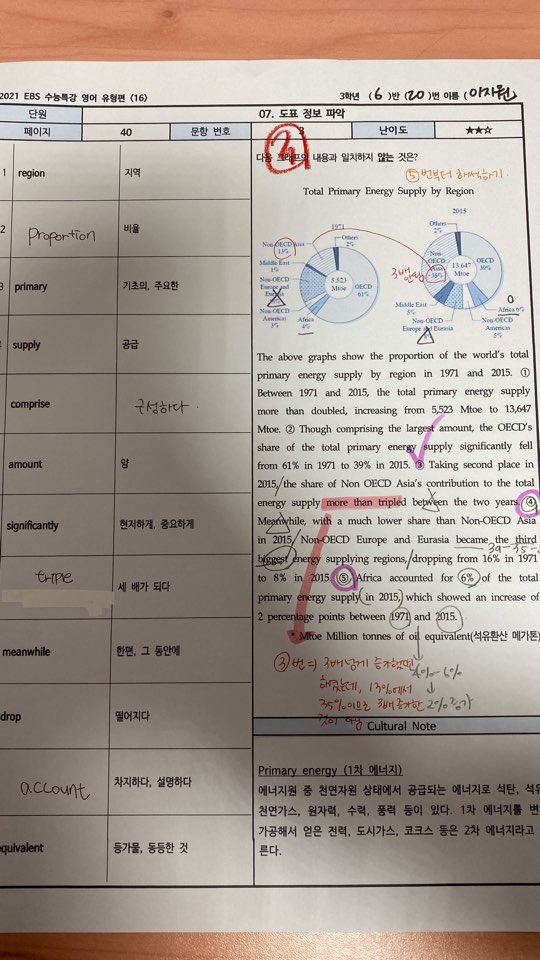 2021 EBS 수능특강 영어 유형편 〈16〉
3학년 (6)반 (20)번 이름 (이지원)
단원
07. 도표 정보 파악
페이지
40
문항 번호
3
난이도
★★☆
1 region 지역
2 proportion 비율
3 primary 기초의, 주요한
supply 공급
comprise 구성하다.
amount 양
significantly 현저하게, 중요하게
triple 세 배가 되다
meanwhile 한편, 그 동안에
drop 떨어지다
account 차지하다, 설명하다
equivalent 등가물, 동등한 것
다음 그래프의 내용과 일치하지 않는 것은?
⑤번부터 해석하기.
Total Primary Energy Supply by Region
1971
Non-OECD Asia
13%
Others
2%
Middle East
1%
Non-OECD
Europe and
Eurasia
5,523
Mtoe
OECD
61%
Non-OECD
Americas
3%
Africa
4%
3배 안됨
2015
Others
2%
Non-
OECD
Asia
35%
13,647
Mtoe
OECD
39%
Middle East
5%
Non-OECD
Europe and Eurasia
8%
Africa 6%
Non-OECD
Americas
5%
The above graphs show the proportion of the world's total
primary energy supply by region in 1971 and 2015. ①
Between 1971 and 2015, the total primary energy supply
more than doubled, increasing from 5,523 Mtoe to 13,647
Mtoe. ② Though comprising the largest amount, the OECD's
share of the total primary energy supply significantly fell
from 61% in 1971 to 39% in 2015. ③ Taking second place in
2015, the share of Non OECD Asia's contribution to the total
energy supply more than tripled between the two years. ④
Meanwhile, with a much lower share than Non-OECD Asia
in 2015, Non-OECD Europe and Eurasia became the third
39-35-
biggest energy supplying regions, dropping from 16% in 1971
to 8% in 2015. ⑤ Africa accounted for 6% of the total
primary energy supply in 2015, which showed an increase of
2 percentage points between 1971 and 2015.
* Mtoe Million tonnes of oil equivalent(석유환산 메가톤)
③번 ⇒ 3배 넘게 증가했다
4%-6%
했는데, 13%에서
35%이므로 3배 증가한
2% 증가
것이 아님
Cultural Note
Primary energy (1차 에너지)
에너지원 중 천연자원 상태에서 공급되는 에너지로 석탄, 석유
천연가스, 원자력, 수력, 풍력 등이 있다. 1차 에너지를 변
가공해서 얻은 전력, 도시가스, 코크스 등은 2차 에너지라고
른다.